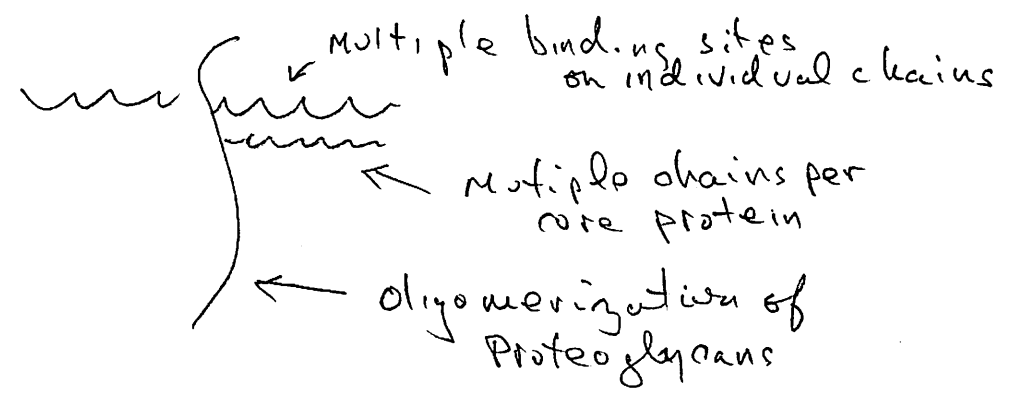 Multiple binding sites
on individual chains
Mutiple chains per
core protein
Oligomerization of
Proteoglycans